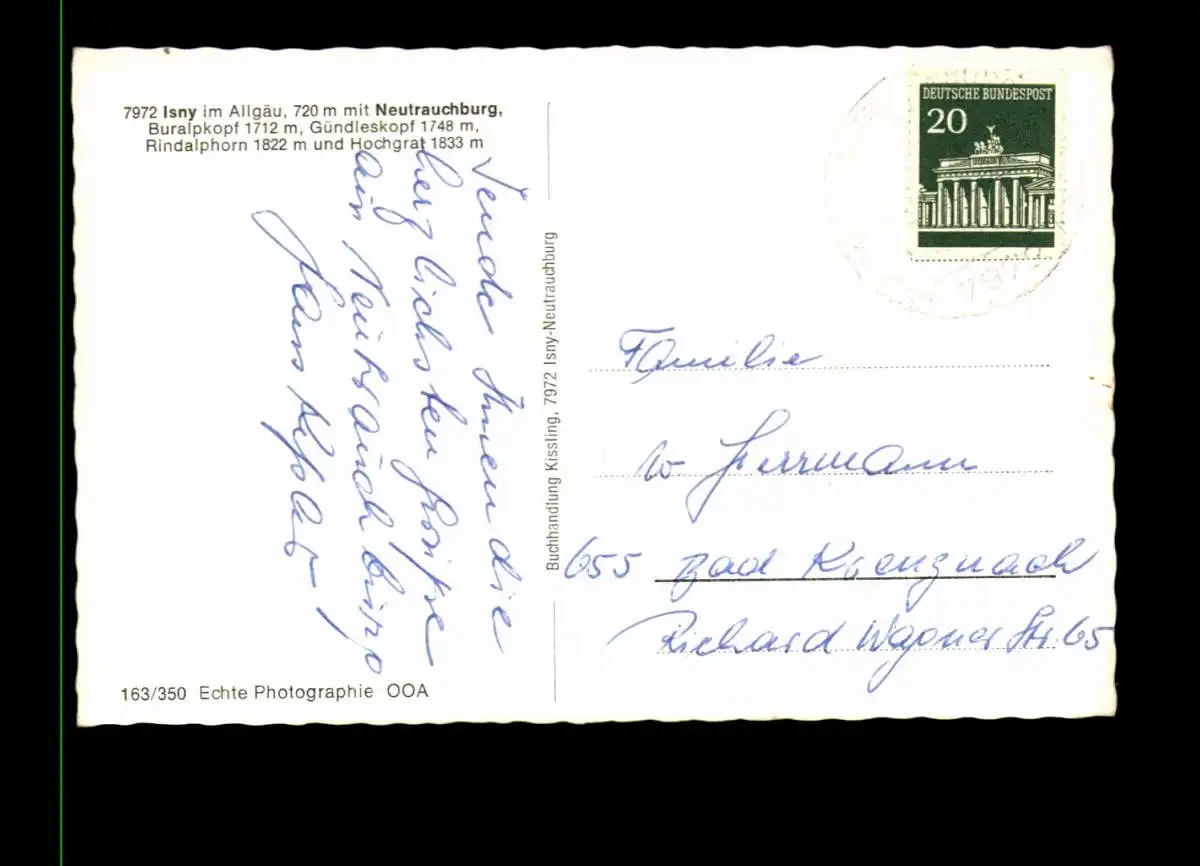 7972 Isny im Allgäu, 720 m mit Neutrauchburg,
Buralpkopf 1712 m, Gündleskopf 1748 m,
Rindalphorn 1822 m und Hochgrat 1833 m
Sende Ihnen die
herzlichsten Grüße
aus Neutrauchburg
Buchhandlung Kissling, 7972 Isny-Neutrauchburg
163/350 Echte Photographie OOA
DEUTSCHE BUNDESPOST
20
797
Familie
W Herrmann
655 Bad Kreuznach
Richard Wagner Str 65